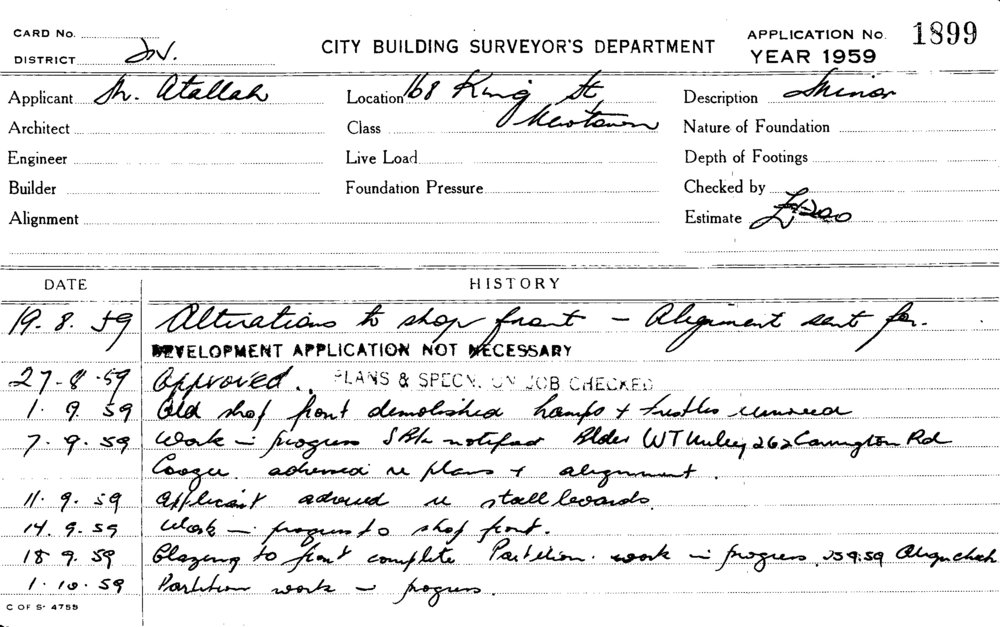 CARD No.
DISTRICT
CITY BUILDING SURVEYOR'S DEPARTMENT
APPLICATION No. 1899
YEAR 1959
Applicant Atallah
Location 168 King St,
Newtown
Description Minor
Architect
Class
Nature of Foundation
Engineer
Live Load
Depth of Footings
Builder
Foundation Pressure
Checked by
Alignment
Estimate £1200
DATE HISTORY
19.8.59 Alterations to shop front – Alignment sent for.
DEVELOPMENT APPLICATION NOT NECESSARY
27-8-59 Approved. PLANS & SPECN. ON JOB CHECKED
1.9.59 Old shop front demolished + trestles removed
7.9.59 Work in progress notified Blder W T 262 Carrington Rd
Coogee advised re plans + alignment.
11.9.59 Applicant advised re stallboards.
14.9.59 Work in progress to shop front.
18 9.59 Glazing to front complete Partition work in progress,
1.10.59 Partition work in progress.
C OF S. 4755